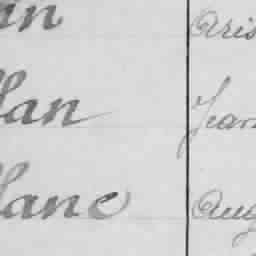 in Aris
lan Jean
lane Aug